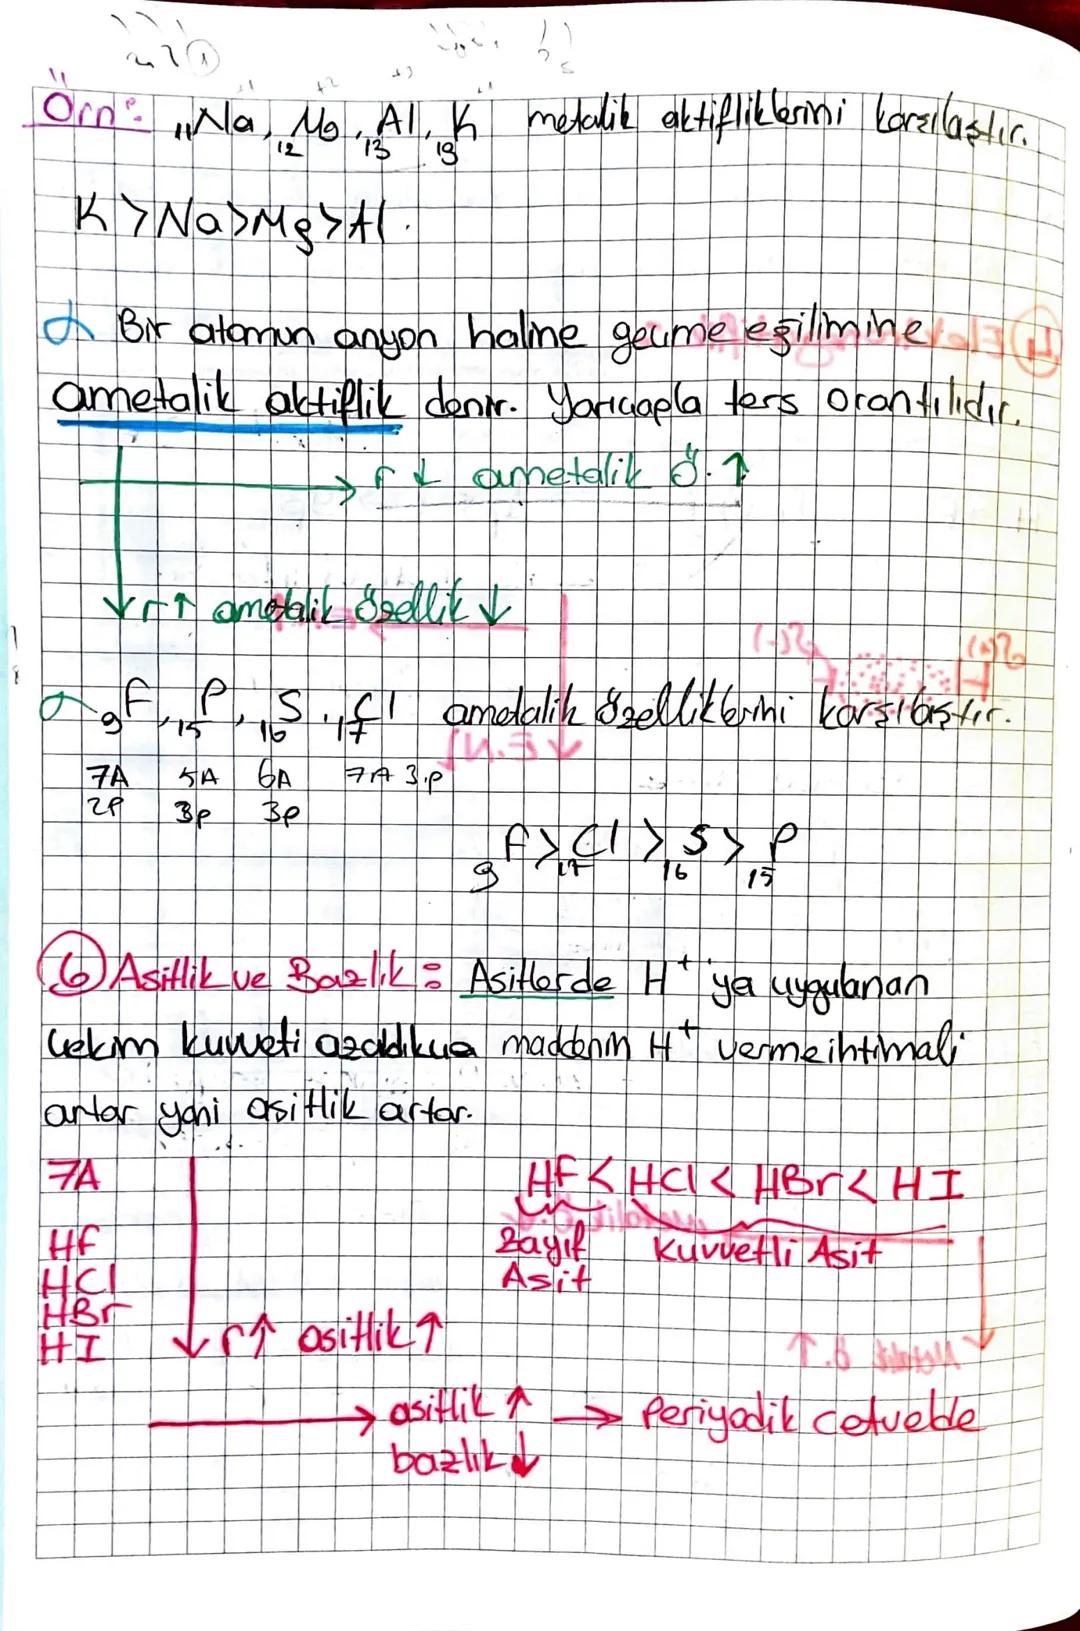 Örn: ₁₁Na, ₁₂Mg, ₁₃Al, ₁₉K metalik aktifliklerini karşılaştır.
K>Na>Mg>Al.
Bir atomun anyon haline geçme eğilimine
ametalik aktiflik denir. Yarıçapla ters orantılıdır.
r ↓ ametalik ö. ↑
r↑ ametalik özellik ↓
₉F, ₁₅P, ₁₆S, ₁₇Cl ametalik özelliklerini karşılaştır.
7A 5A 6A 7A 3.p
2p 3p 3p
₉F > ₁₇Cl > ₁₆S > ₁₅P
6 Asitlik ve Bazlık: Asitlerde H⁺ 'ya uygulanan
çekim kuvveti azaldıkça maddenin H⁺ verme ihtimali
artar yani asitlik artar.
7A HF < HCl < HBr < HI
HF Zayıf Kuvvetli Asit
HCl Asit
HBr
HI r↑ asitlik ↑
→ asitlik ↑ → Periyodik cetvelde
bazlık ↓